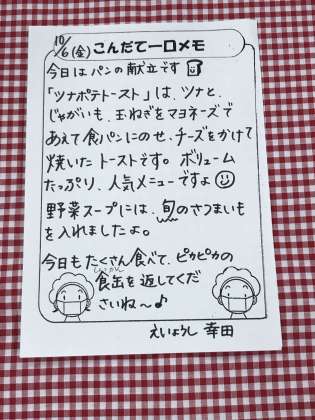 10/6(金) こんだて一口メモ
今日はパンの献立です
「ツナポテトースト」は、ツナと、
じゃがいも、玉ねぎをマヨネーズで
あえて食パンにのせ、チーズをかけて
焼いたトーストです。ボリューム
たっぷり、人気メニューですよ
野菜スープには、旬のさつまいも
を入れましたよ。
今日もたくさん食べて、ピカピカの
食缶を返してくだ
さいね〜♪
えいようし 幸田